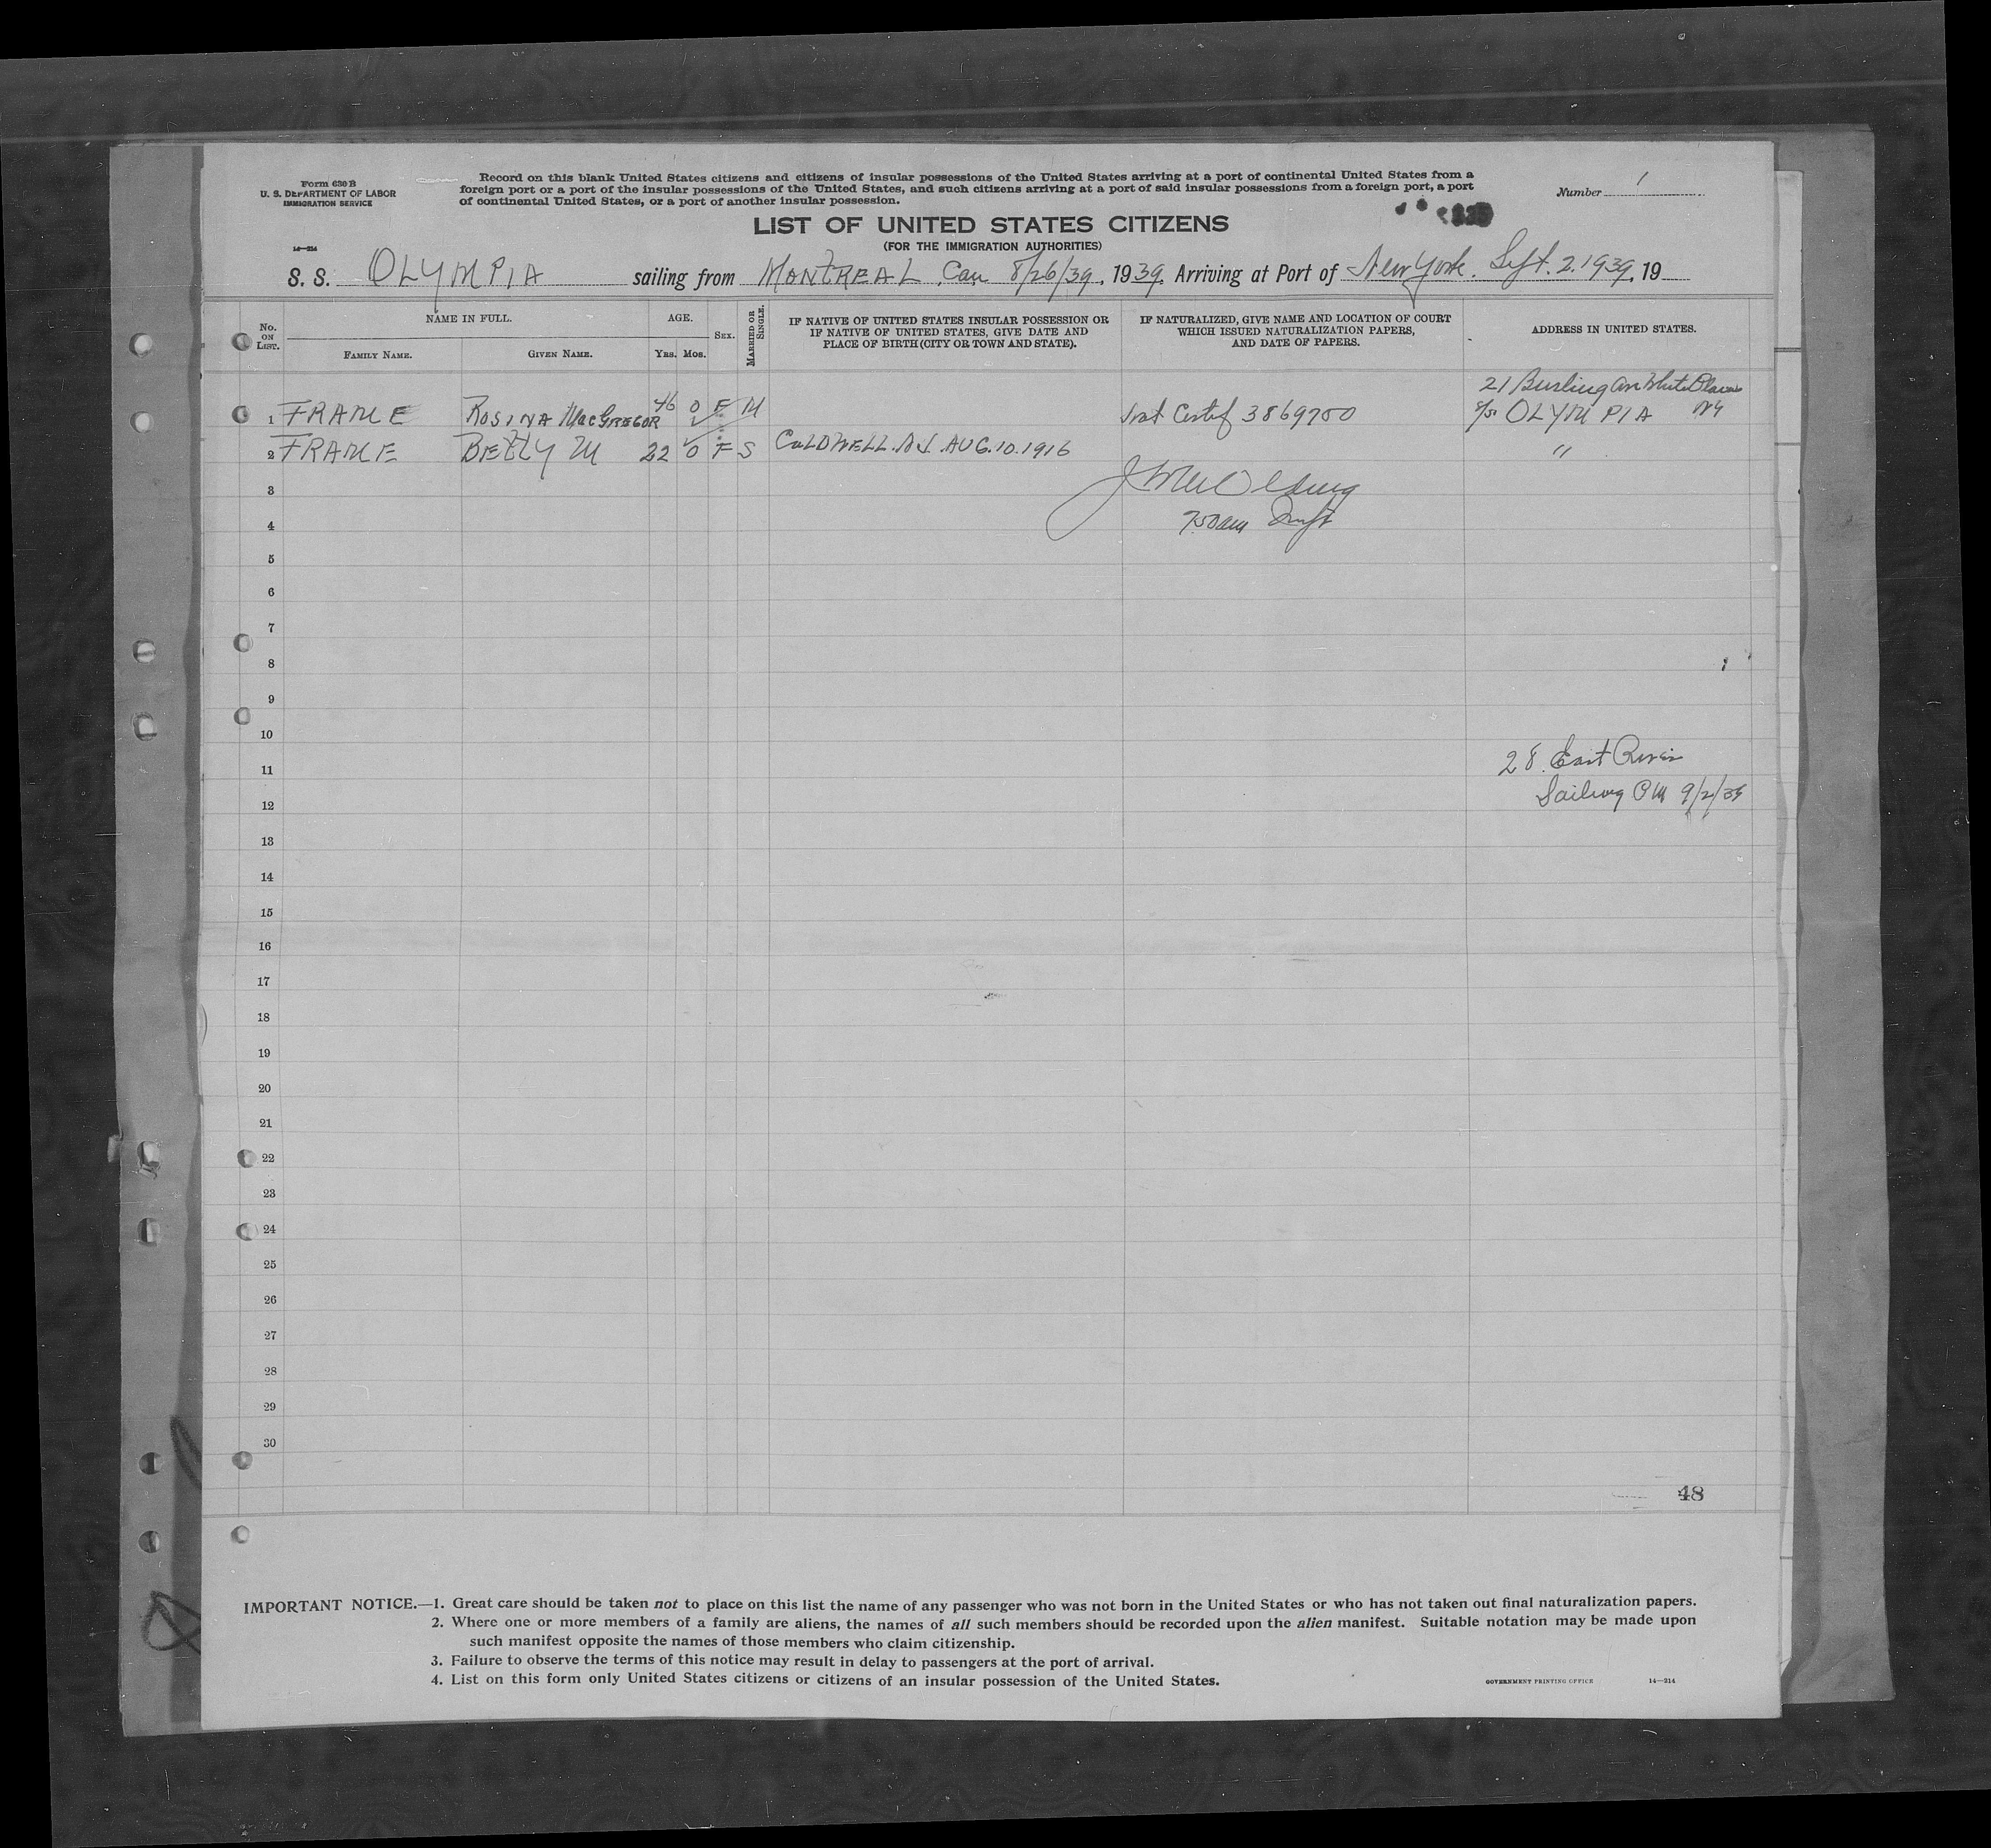 Form 630 B
U. S. DEPARTMENT OF LABOR
IMMIGRATION SERVICE
14—314
Record on this blank United States citizens and citizens of insular possessions of the United States arriving at a port of continental United States from a
foreign port or a port of the insular possessions of the United States, and such citizens arriving at a port of said insular possessions from a foreign port, a port
of continental United States, or a port of another insular possession.
Number 1
LIST OF UNITED STATES CITIZENS
(FOR THE IMMIGRATION AUTHORITIES)
S. S. OLYMPIA sailing from MONTREAL, Can 8/26/39, 1939, Arriving at Port of New York. Sept. 2. 1939, 19
No. ON LIST.
NAME IN FULL.
FAMILY NAME.
GIVEN NAME.
AGE.
YRS. MOS.
SEX.
MARRIED OR SINGLE.
IF NATIVE OF UNITED STATES INSULAR POSSESSION OR
IF NATIVE OF UNITED STATES, GIVE DATE AND
PLACE OF BIRTH (CITY OR TOWN AND STATE).
IF NATURALIZED, GIVE NAME AND LOCATION OF COURT
WHICH ISSUED NATURALIZATION PAPERS,
AND DATE OF PAPERS.
ADDRESS IN UNITED STATES.
21 Burling Av White Plains
1 FRAME ROSINA MacGREGOR 46 0 F M Nat Certif 3869700 S/S OLYMPIA NY
2 FRAME BETTY M 22 0 F S CALDWELL. N.J. AUG. 10. 1916 "
3
4 7.50am
5
6
7
8
9
10
11 28. East River
12 Sailing PM 9/2/39
13
14
15
16
17
18
19
20
21
22
23
24
25
26
27
28
29
30
48
IMPORTANT NOTICE.—1. Great care should be taken not to place on this list the name of any passenger who was not born in the United States or who has not taken out final naturalization papers.
2. Where one or more members of a family are aliens, the names of all such members should be recorded upon the alien manifest. Suitable notation may be made upon
such manifest opposite the names of those members who claim citizenship.
3. Failure to observe the terms of this notice may result in delay to passengers at the port of arrival.
4. List on this form only United States citizens or citizens of an insular possession of the United States.
GOVERNMENT PRINTING OFFICE 14—314